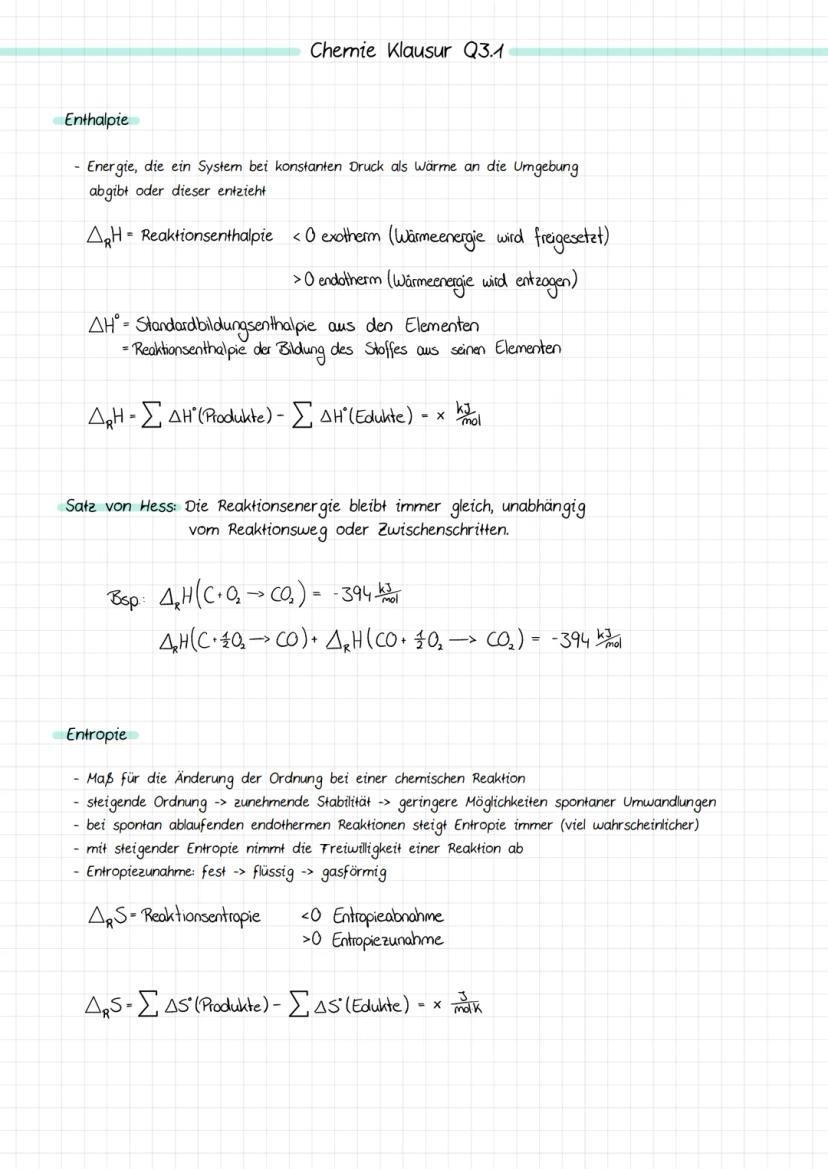 Chemie Klausur Q3.1
Enthalpie
- Energie, die ein System bei konstanten Druck als Wärme an die Umgebung
abgibt oder dieser entzieht
Δ_R H = Reaktionsenthalpie < 0 exotherm (Wärmeenergie wird freigesetzt)
> 0 endotherm (Wärmeenergie wird entzogen)
ΔH° = Standardbildungsenthalpie aus den Elementen
= Reaktionsenthalpie der Bildung des Stoffes aus seinen Elementen
Δ_R H = ∑ ΔH°(Produkte) - ∑ ΔH°(Edukte) = x kJ/mol
Satz von Hess: Die Reaktionsenergie bleibt immer gleich, unabhängig
vom Reaktionsweg oder Zwischenschritten.
Bsp.: Δ_R H(C + O₂ → CO₂) = -394 kJ/mol
Δ_R H(C + ½O₂ → CO) + Δ_R H(CO + ½O₂ → CO₂) = -394 kJ/mol
Entropie
- Maß für die Änderung der Ordnung bei einer chemischen Reaktion
- steigende Ordnung -> zunehmende Stabilität -> geringere Möglichkeiten spontaner Umwandlungen
- bei spontan ablaufenden endothermen Reaktionen steigt Entropie immer (viel wahrscheinlicher)
- mit steigender Entropie nimmt die Freiwilligkeit einer Reaktion ab
- Entropiezunahme: fest -> flüssig -> gasförmig
Δ_R S = Reaktionsentropie < 0 Entropieabnahme
> 0 Entropiezunahme
Δ_R S = ∑ ΔS°(Produkte) - ∑ ΔS°(Edukte) = x J/mol·K